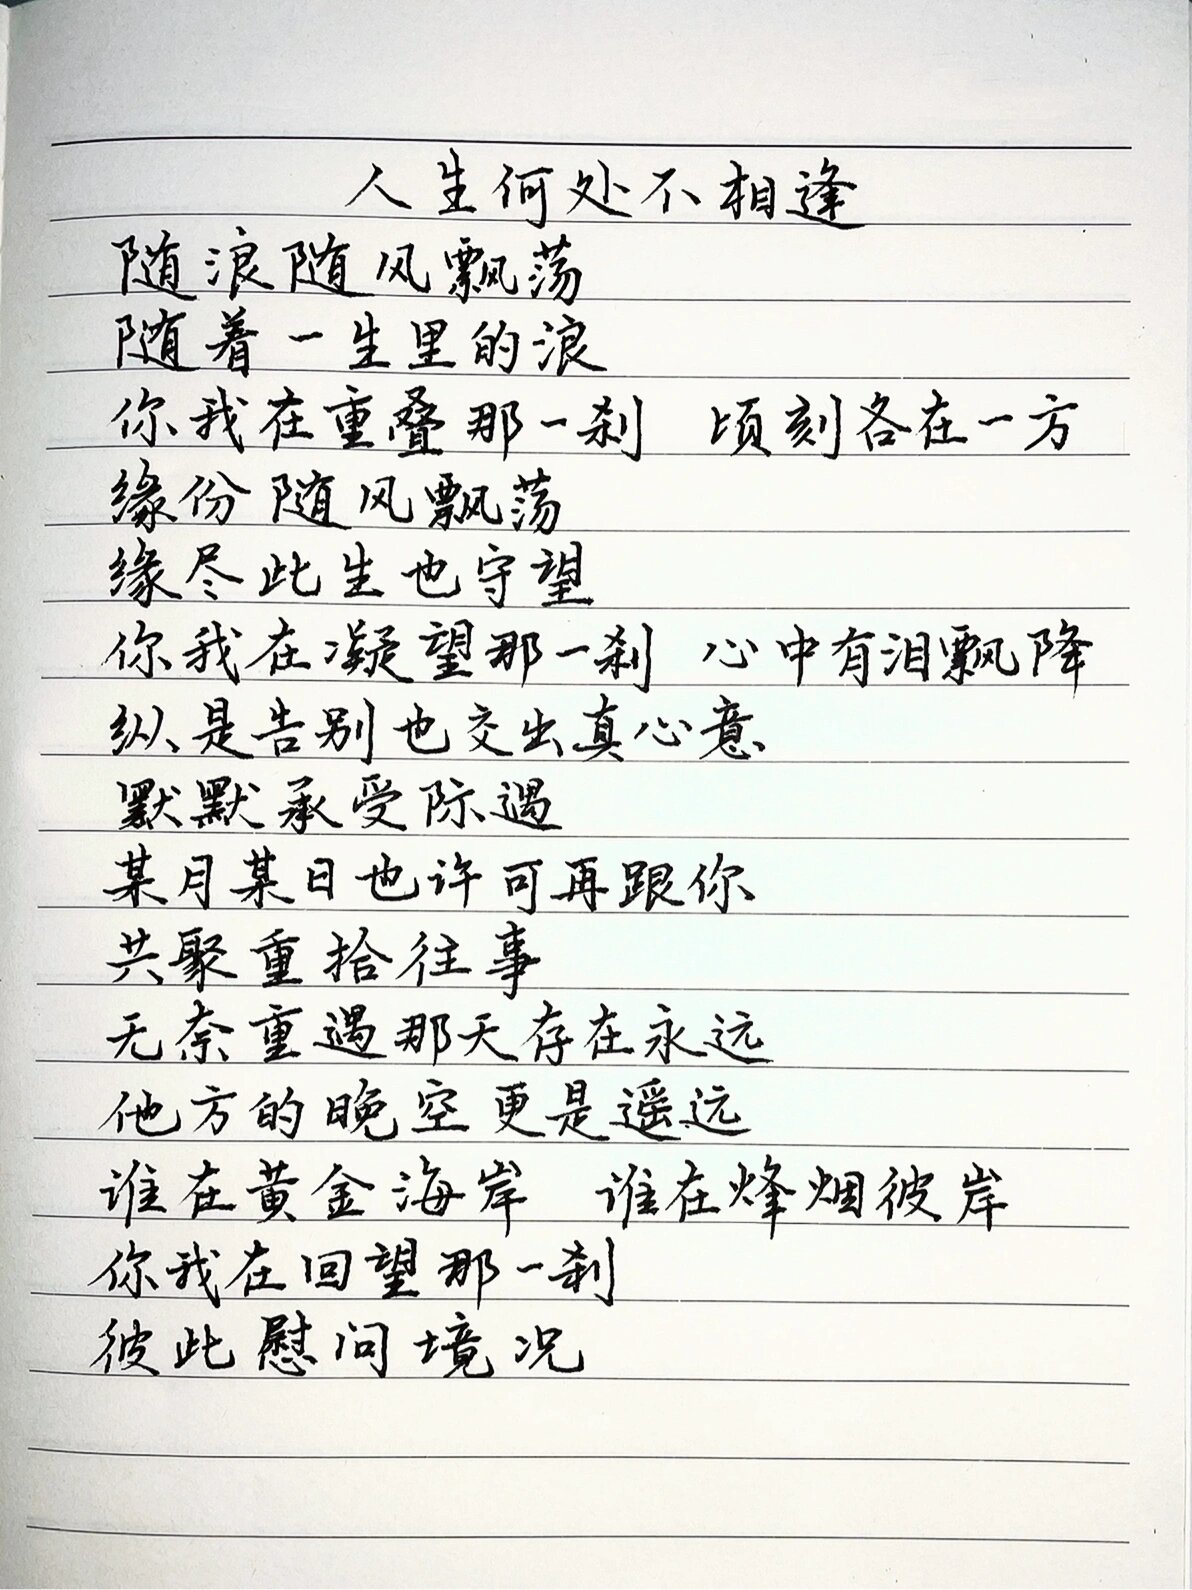 人生何处不相逢
随浪随风飘荡
随着一生里的浪
你我在重叠那一刹 顷刻各在一方
缘份随风飘荡
缘尽此生也守望
你我在凝望那一刹 心中有泪飘降
纵是告别也交出真心意
默默承受际遇
某月某日也许可再跟你
共聚重拾往事
无奈重遇那天存在永远
他方的晚空更是遥远
谁在黄金海岸 谁在烽烟彼岸
你我在回望那一刹
彼此慰问境况